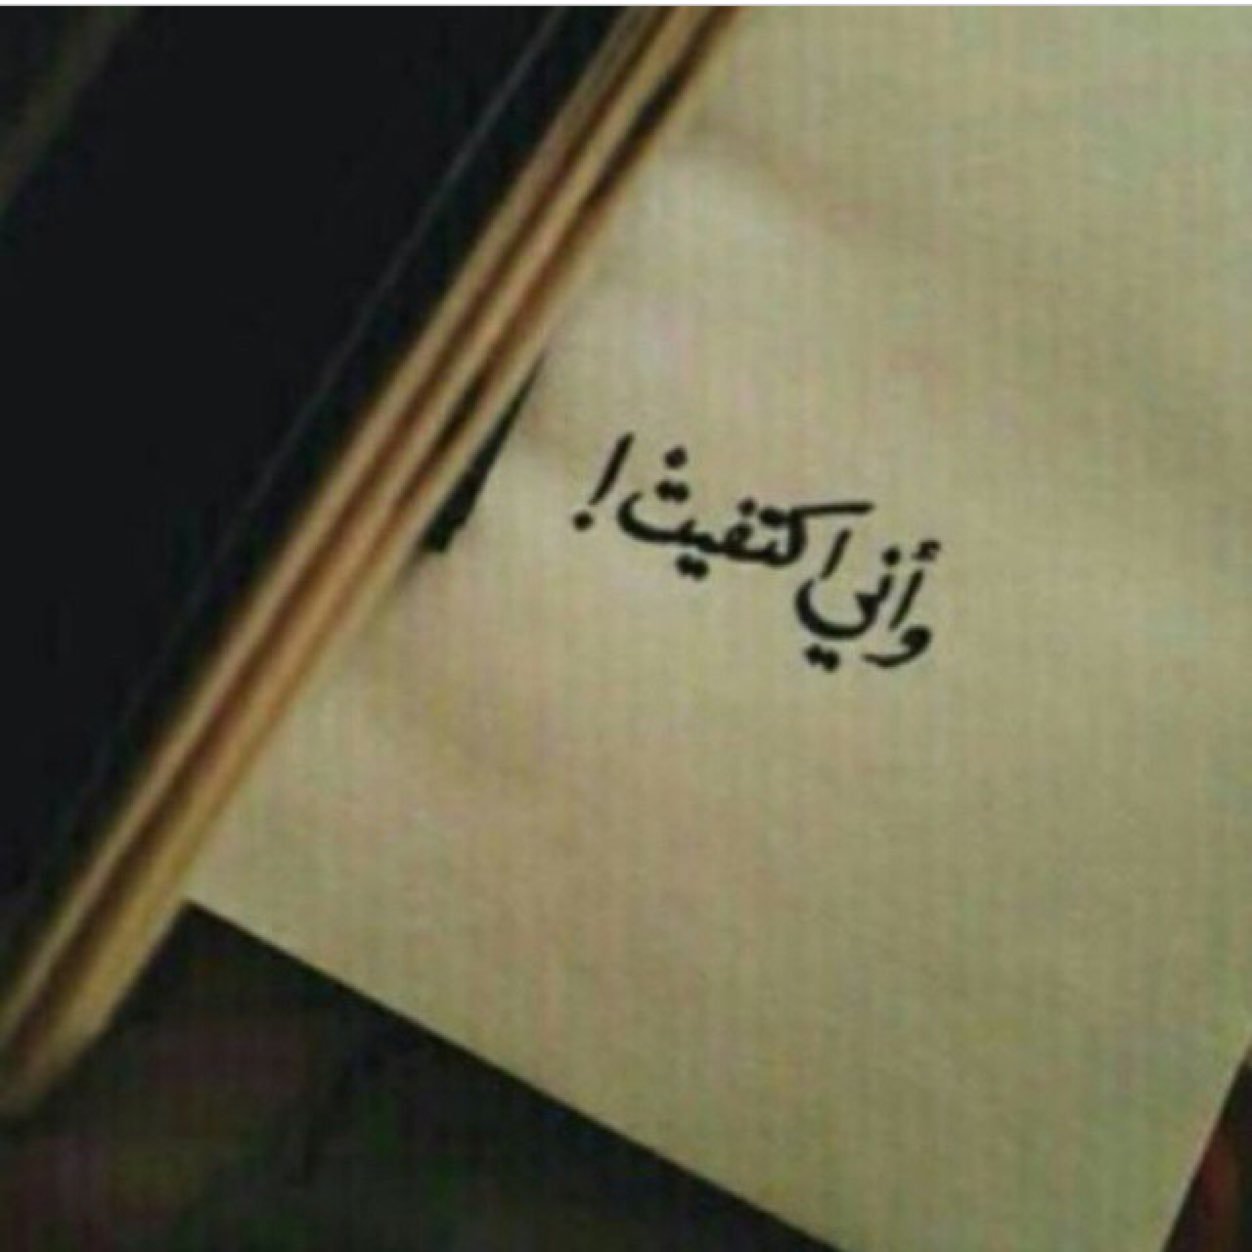 وأني اكتفيتْ!